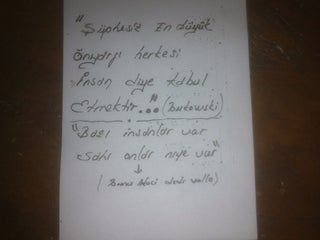 "Şüphesiz En düyük
Önyargı herkesi
İnsan diye kabul
Etmektir..." (Bukowski)
"Bazı insanlar var
Sahi onlar niye var"
(Bunu